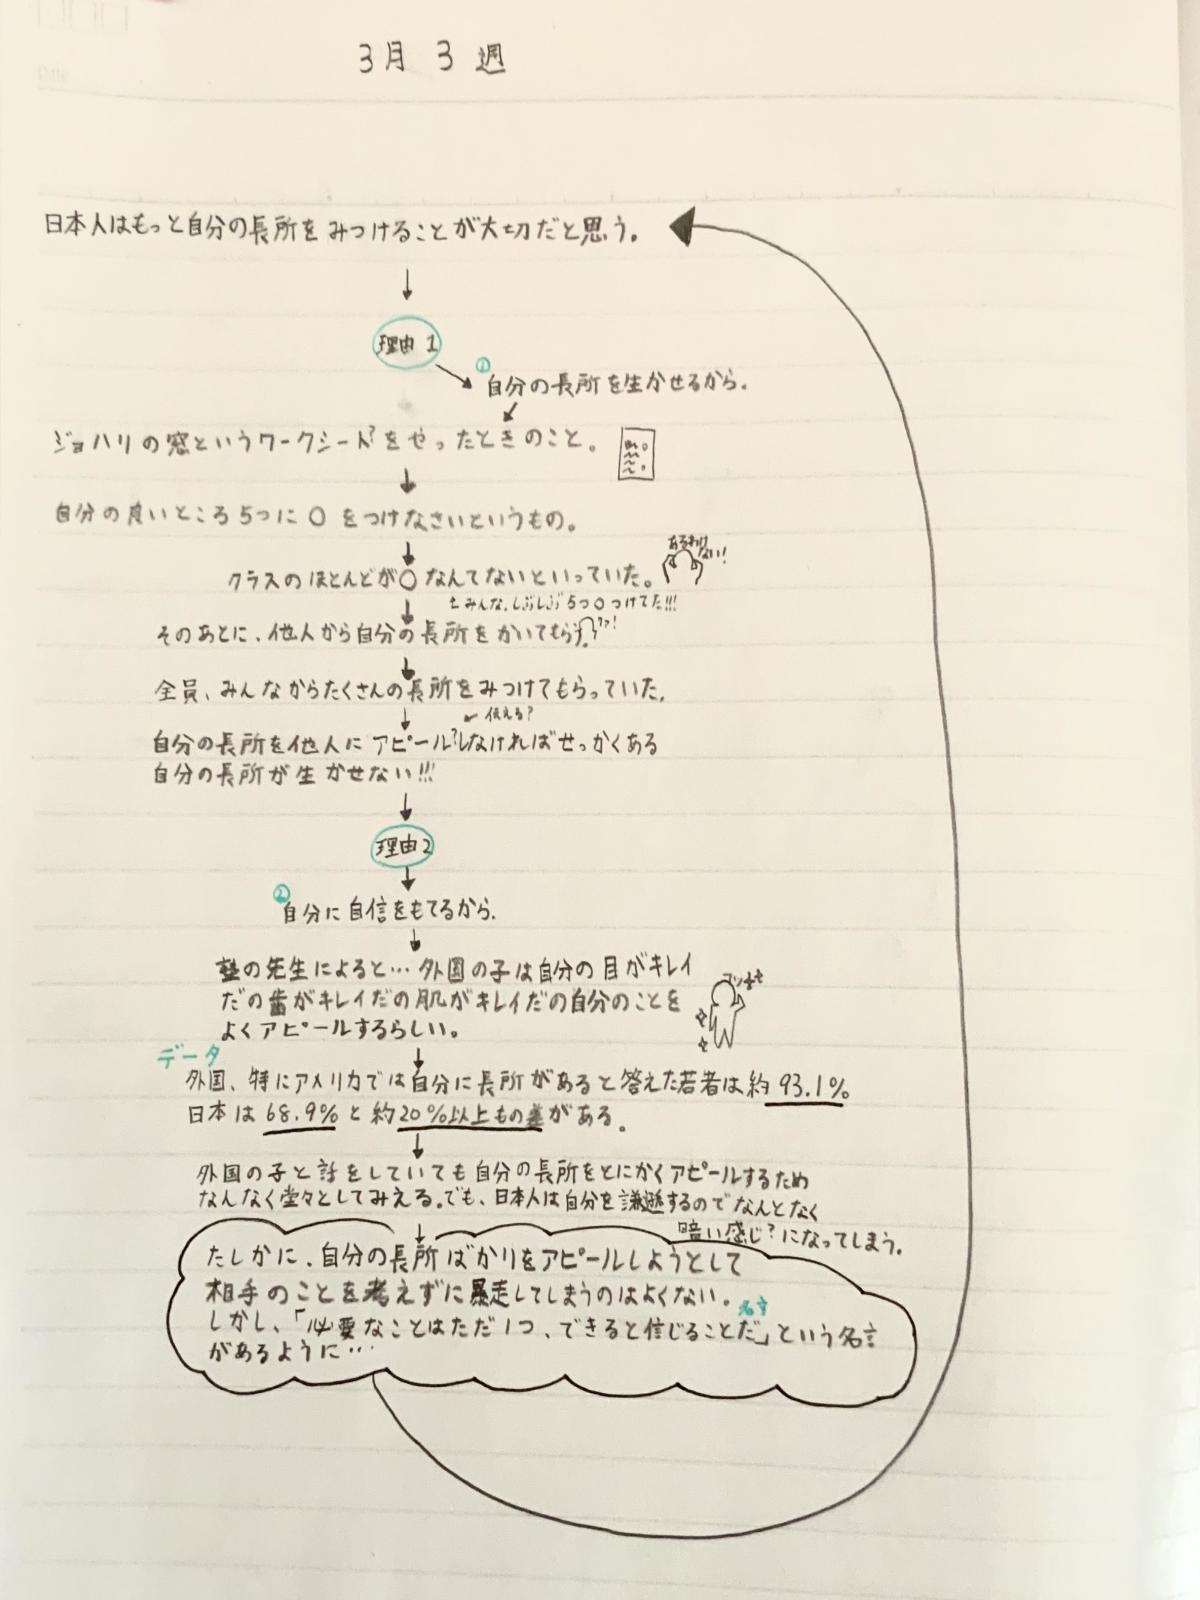 3月 3週
日本人はもっと自分の長所をみつけることが大切だと思う。
理由1
① 自分の長所を生かせるから.
ジョハリの窓というワークシート?をやったときのこと。
自分の良いところ5つに○をつけなさいというもの。
あるわけ
ない!
クラスのほとんどが○なんてないといっていた。
みんな、しぶしぶ5つ○つけてた!!!
そのあとに、他人から自分の長所をかいてもらう。
全員、みんなからたくさんの長所をみつけてもらっていた.
伝える?
自分の長所を他人にアピール?しなければせっかくある
自分の長所が生かせない!!!
理由2
② 自分に自信をもてるから.
塾の先生によると…外国の子は自分の目がキレイ
だの歯がキレイだの肌がキレイだの自分のことを
よくアピールするらしい。
データ
外国、特にアメリカでは自分に長所があると答えた若者は約93.1%
日本は68.9%と約20%以上もの差がある。
外国の子と話をしていても自分の長所をとにかくアピールするため
なんなく堂々としてみえる。でも、日本人は自分を謙遜するのでなんとなく
暗い感じ?になってしまう。
たしかに、自分の長所ばかりをアピールしようとして
相手のことを考えずに暴走してしまうのはよくない。
名言
しかし、「必要なことはただ1つ、できると信じることだ」という名言
があるように…